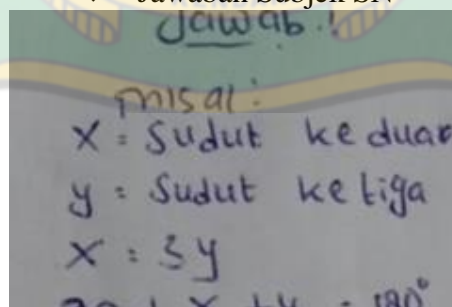 Jawaban Subjek SN
Jawab !
misal :
X = Sudut kedua
y = Sudut ketiga
X = 3y